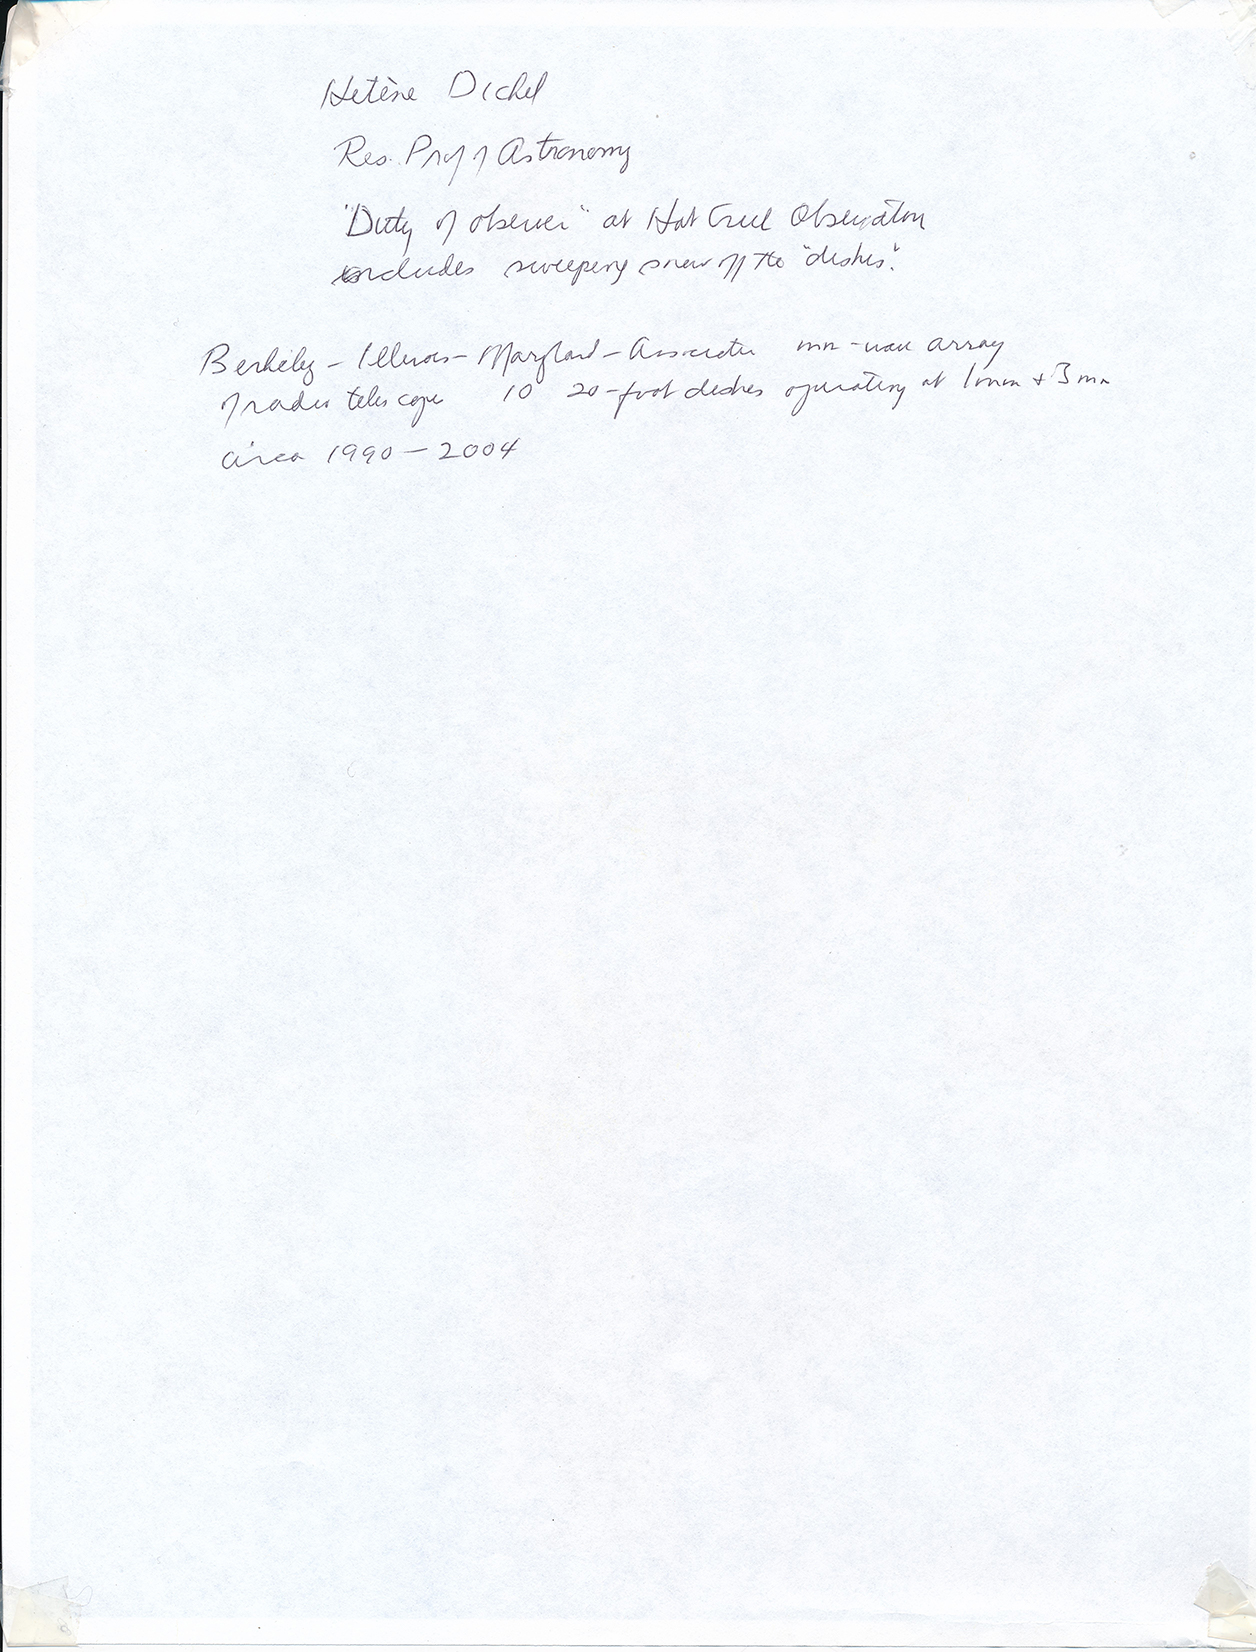 Helène Dickel
Res. Prof of Astronomy
"Duty of observer" at Hat Creek Observatory
includes sweeping snow off the "dishes".
Berkeley - Illinois - Maryland - Association mm-wave array
of radio telescope 10 20-foot dishes operating at 1mm + 3mm
circa 1990 - 2004